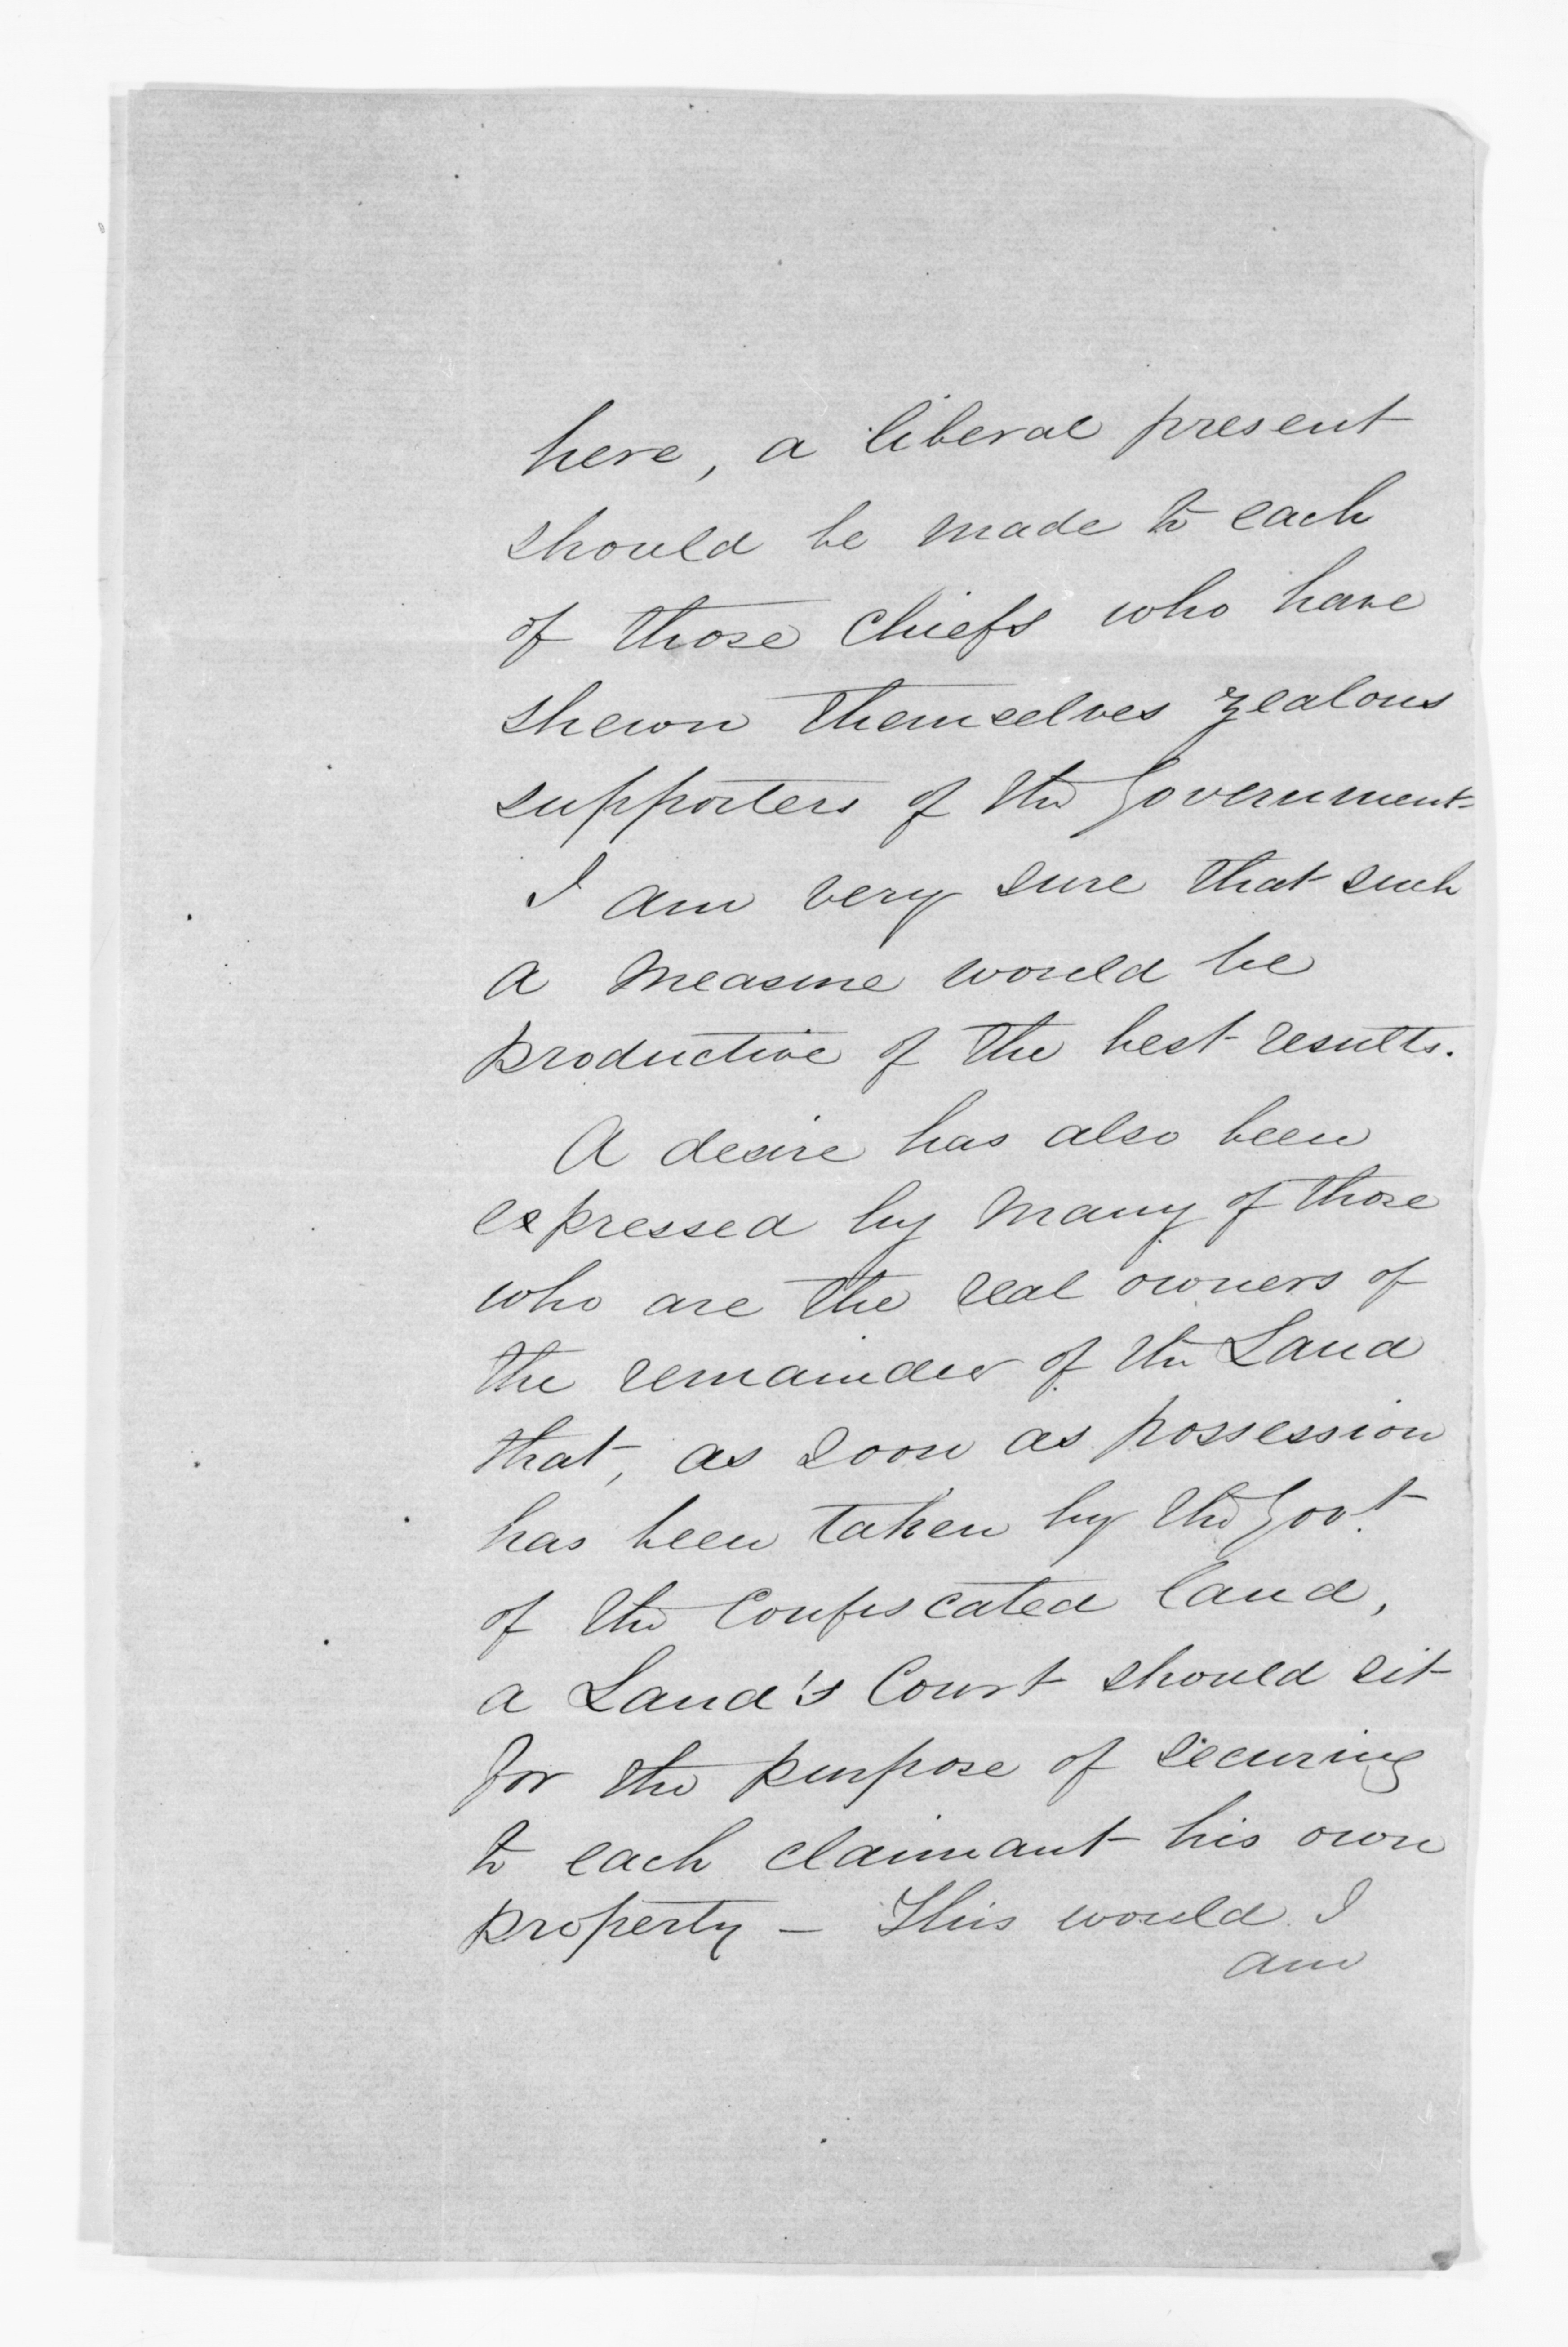 here, a liberal present
should be made to each
of those Chiefs who have
shewn themselves zealous
supporters of the Government
I am very sure that such
a measure would be
productive of the best results.
A desire has also been
expressed by many of those
who are the real owners of
the remainder of the Land
that, as soon as possession
has been taken by the Govt
of the Confiscated land,
a Land's Court should sit
for the purpose of securing
to each claimant his own
property — This would I
am